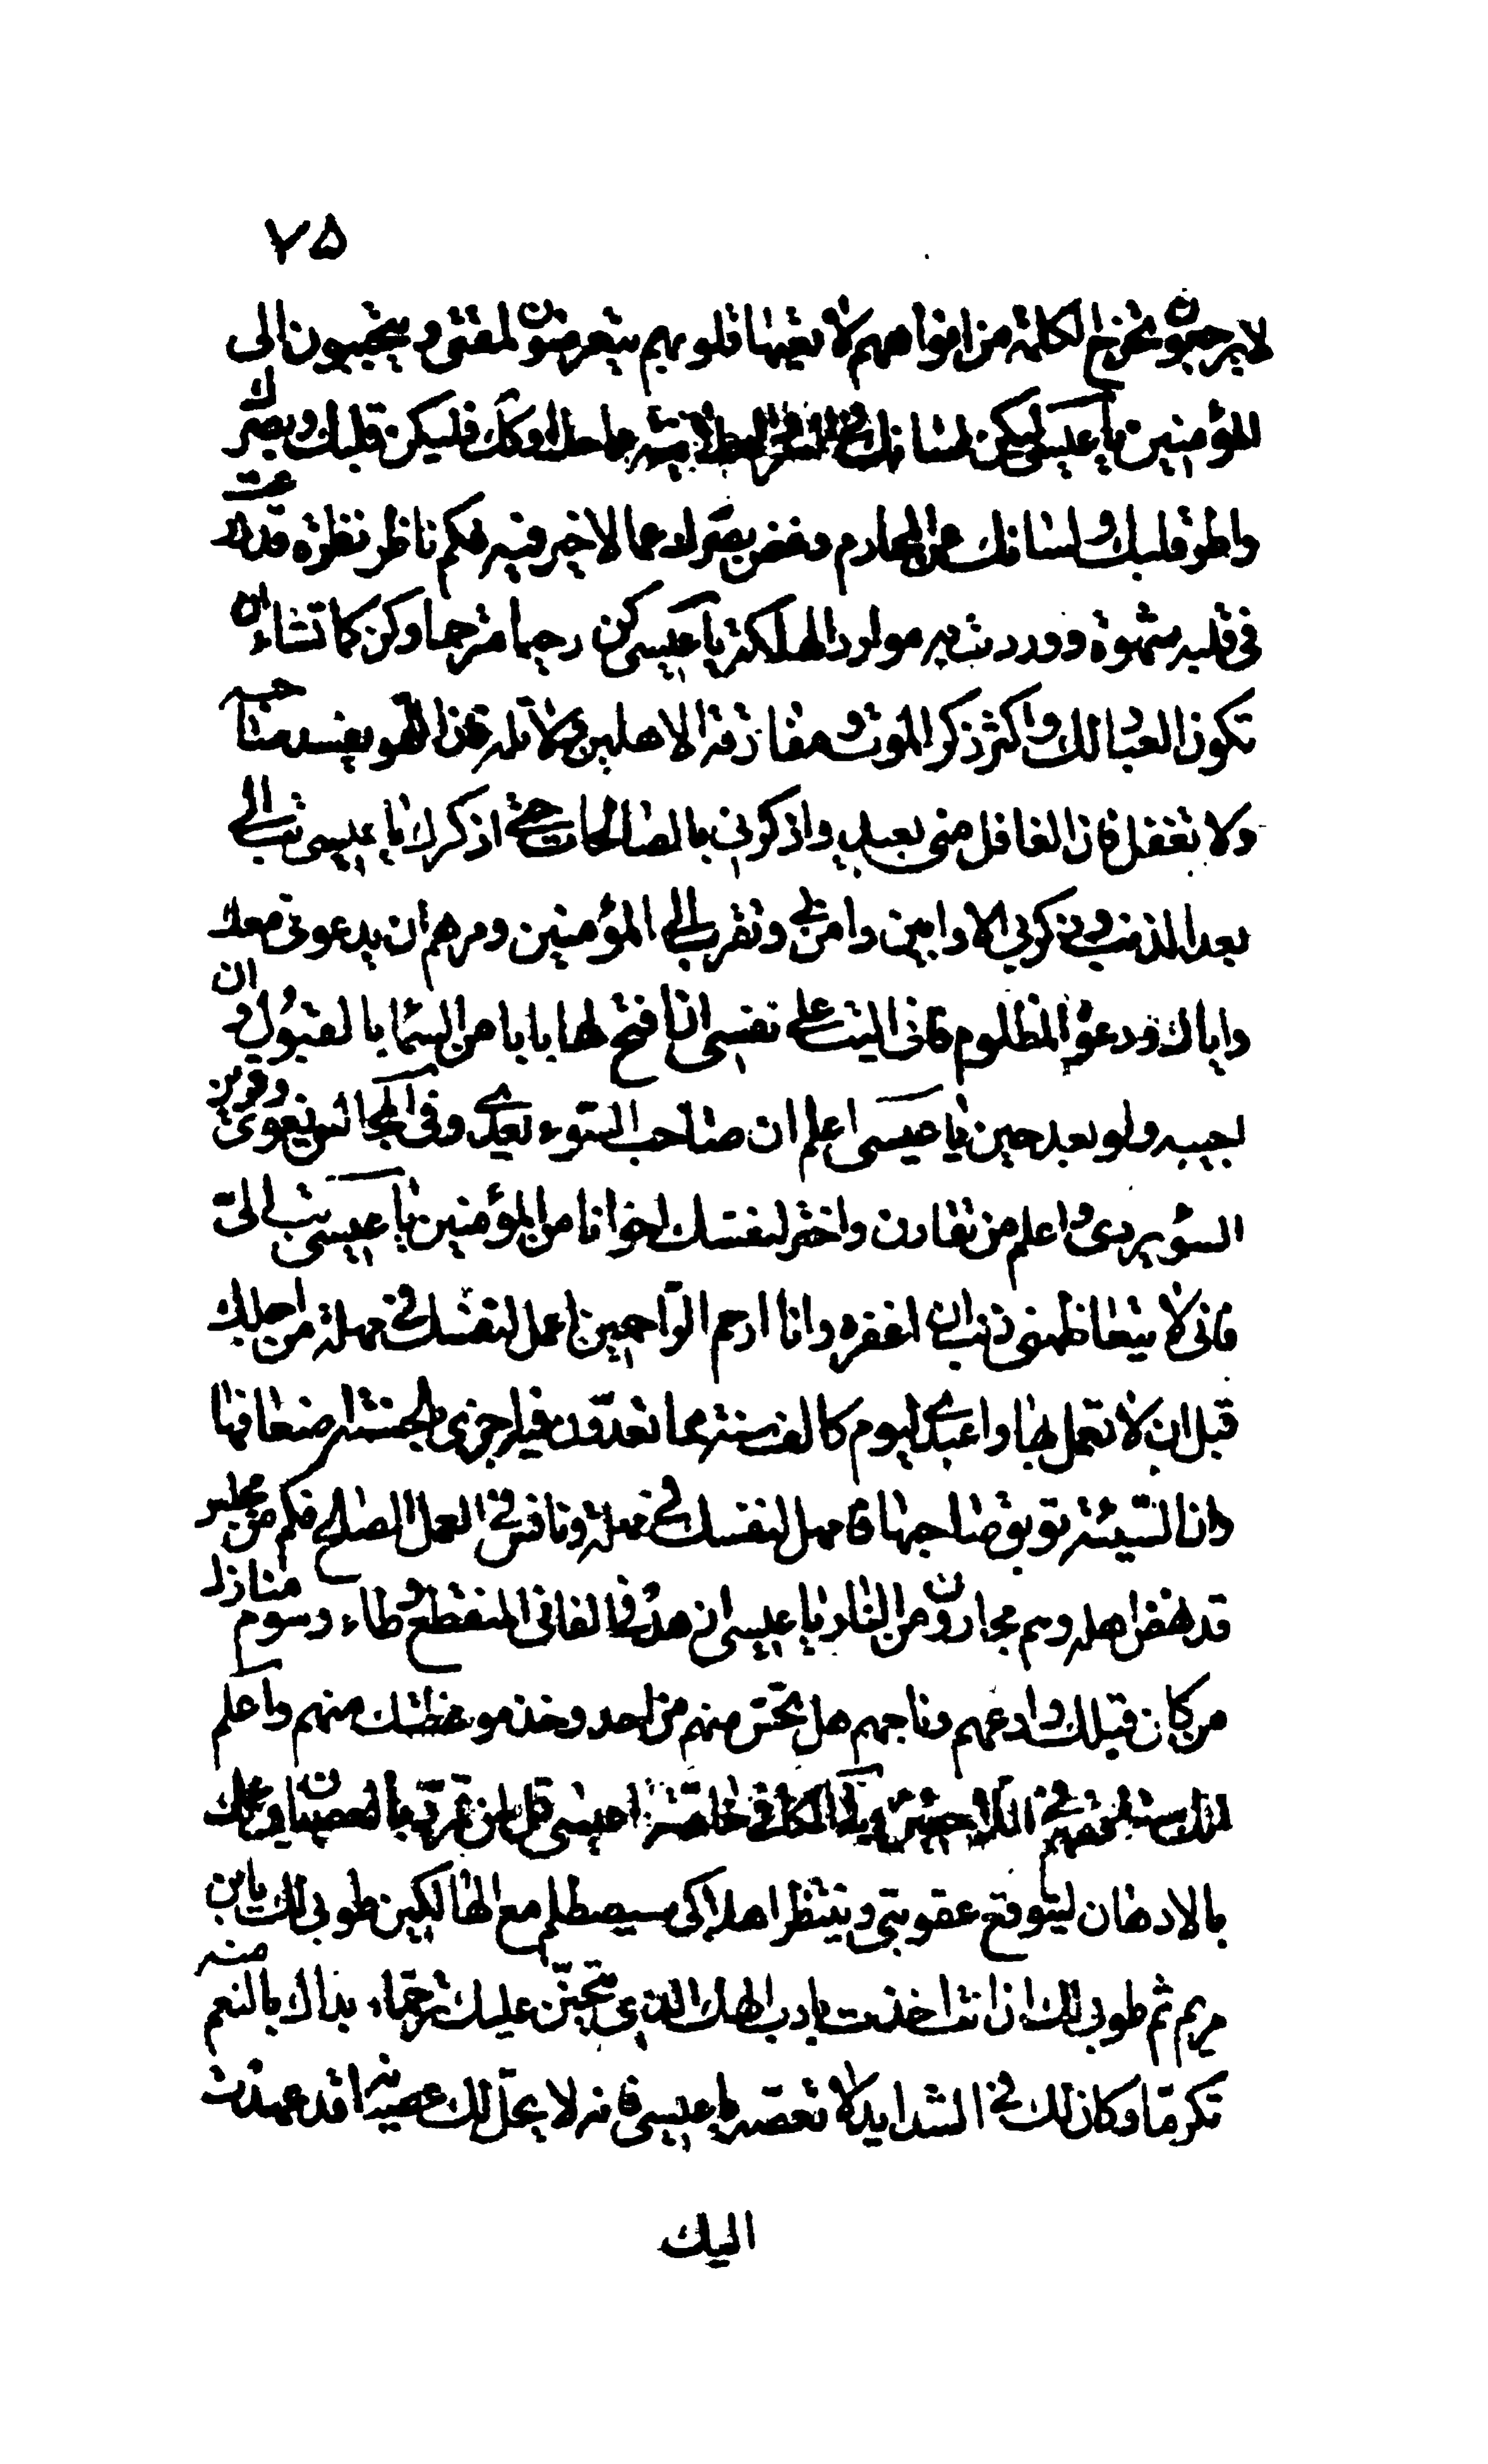 ٧۵
لا يرجعون تخرج الكلمة من افواههم لا تعيها قلوبهم يتعرضون لمقتى و يتحببون الى
المؤمنين يا عيسى ليكن لسانك فى السر و العلانية واحدا و كذلك فليكن قلبك و بصرك
واطو قلبك و لسانك عن المحارم و غض بصرك عما لا خير فيه فكم ناظر نظرة قد زرعت
فى قلبه شهوة و وردت به موارد الهلكة يا عيسى كن رحيما مترحما و كن كما تشاء ان
تكون العباد لك و اكثر ذكر الموت و مفارقة الاهلين و لا تله فان اللهو يفسد صاحبه
ولا تغفل فان الغافل منى بعيد و اذكرنى بالصالحات حتى اذكرك يا عيسى تب الى
بعد الذنب و ذكر بى الاوابين و امن بى و تقرب الى المؤمنين و مرهم ان يدعونى معك
و اياك و دعوة المظلوم فانى اليت على نفسى ان افتح لها بابا من السماء بالقبول و ان
اجيبه ولو بعد حين يا عيسى اعلم ان صاحب السوء يعدى و فى المجالس يغوى و قرين
السوء يردى و اعلم من تقارن و اختر لنفسك اخوانا من المؤمنين يا عيسى تب الى
فانى لا يتعاظمنى ذنب ان اغفره و انا ارحم الراحمين اعمل لنفسك فى مهلة من اجلك
قبل ان لا تعمل لها و اعبدنى ليوم كالف سنة مما تعدون فيه اجزى بالحسنة اضعافها
و ان السيئة توبق صاحبها فامهد لنفسك فى مهلة و نافس فى العمل الصالح فكم من مجلس
قد نهض اهله و هم مجارون من النار يا عيسى ازهد فى الفانى المنقطع و طاء رسوم منازل
من كان قبلك و ادعهم و ناجهم هل تحس منهم من احد و خذ موعظتك منهم و اعلم
انك ستلحقهم فى اللاحقين يا عيسى قل لمن تمرد بالعصيان و عمل
بالادهان ليتوقع عقوبتى و ينتظر اهلاكى سيصطلم مع الهالكين طوبى لك يا بن
مريم ثم طوبى لك ان انت اخذت بادب الهك الذى يتحنن عليك ترحما و بداك بالنعم منه
تكرما و كان لك فى الشدايد لا تعصه يا عيسى فانه لا يحل لك عصيانه قد عهدت
اليك